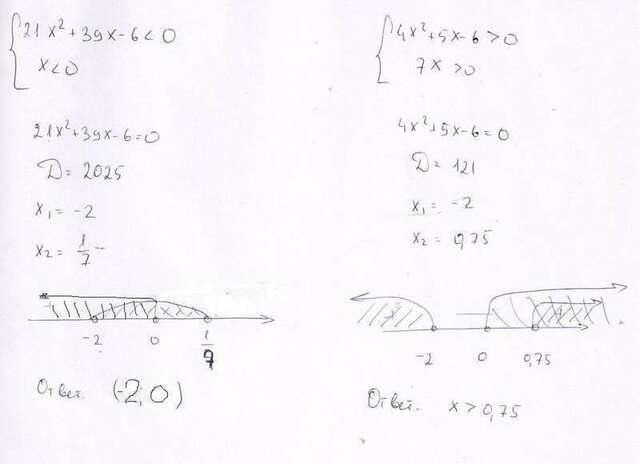 21x²+39x-6<0
x<0
21x²+39x-6=0
D=2025
x₁=-2
x₂=1/7
-2 0 1/7
Ответ. (-2;0)
4x²+5x-6>0
7x>0
4x²+5x-6=0
D=121
x₁=-2
x₂=0,75
-2 0 0,75
Ответ. x>0,75